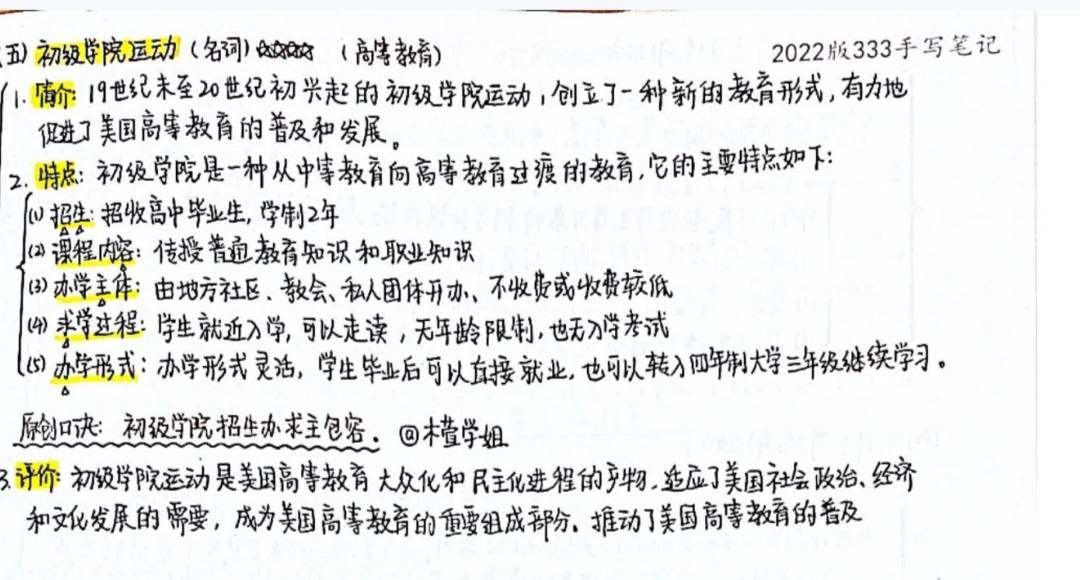 (五) 初级学院运动 (名词) ☆☆☆☆ (高等教育)
2022版333手写笔记
1. 简介: 19世纪末至20世纪初兴起的初级学院运动,创立了一种新的教育形式,有力地
促进了美国高等教育的普及和发展。
2. 特点: 初级学院是一种从中等教育向高等教育过渡的教育,它的主要特点如下:
(1) 招生: 招收高中毕业生,学制2年
(2) 课程内容: 传授普通教育知识和职业知识
(3) 办学主体: 由地方社区、教会、私人团体开办、不收费或收费较低
(4) 求学过程: 学生就近入学,可以走读,无年龄限制,也无入学考试
(5) 办学形式: 办学形式灵活,学生毕业后可以直接就业,也可以转入四年制大学三年级继续学习。
原创口诀: 初级学院招生办求主包容. @木堇学姐
3. 评价: 初级学院运动是美国高等教育大众化和民主化进程的产物.适应了美国社会政治、经济
和文化发展的需要,成为美国高等教育的重要组成部分.推动了美国高等教育的普及